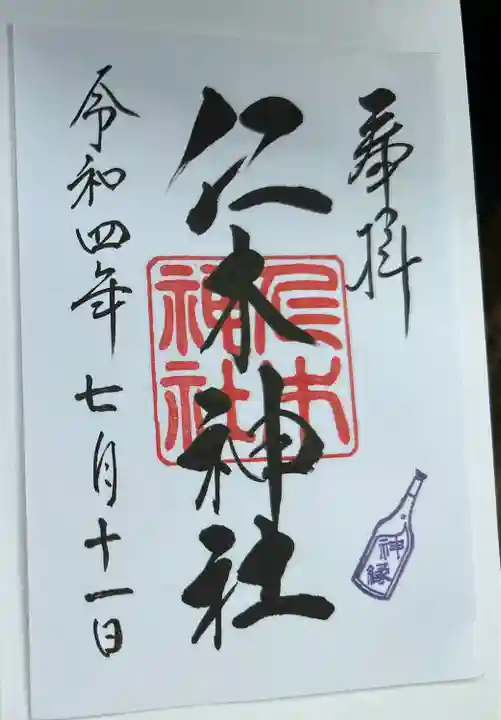 奉拝
仁木神社
仁木
神社
神縁
令和四年七月十一日